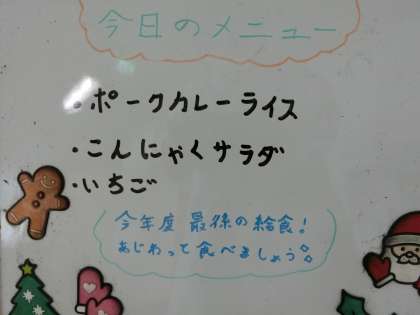 今日のメニュー
・ポークカレーライス
・こんにゃくサラダ
・いちご
今年度 最後の給食!
あじわって食べましょう。